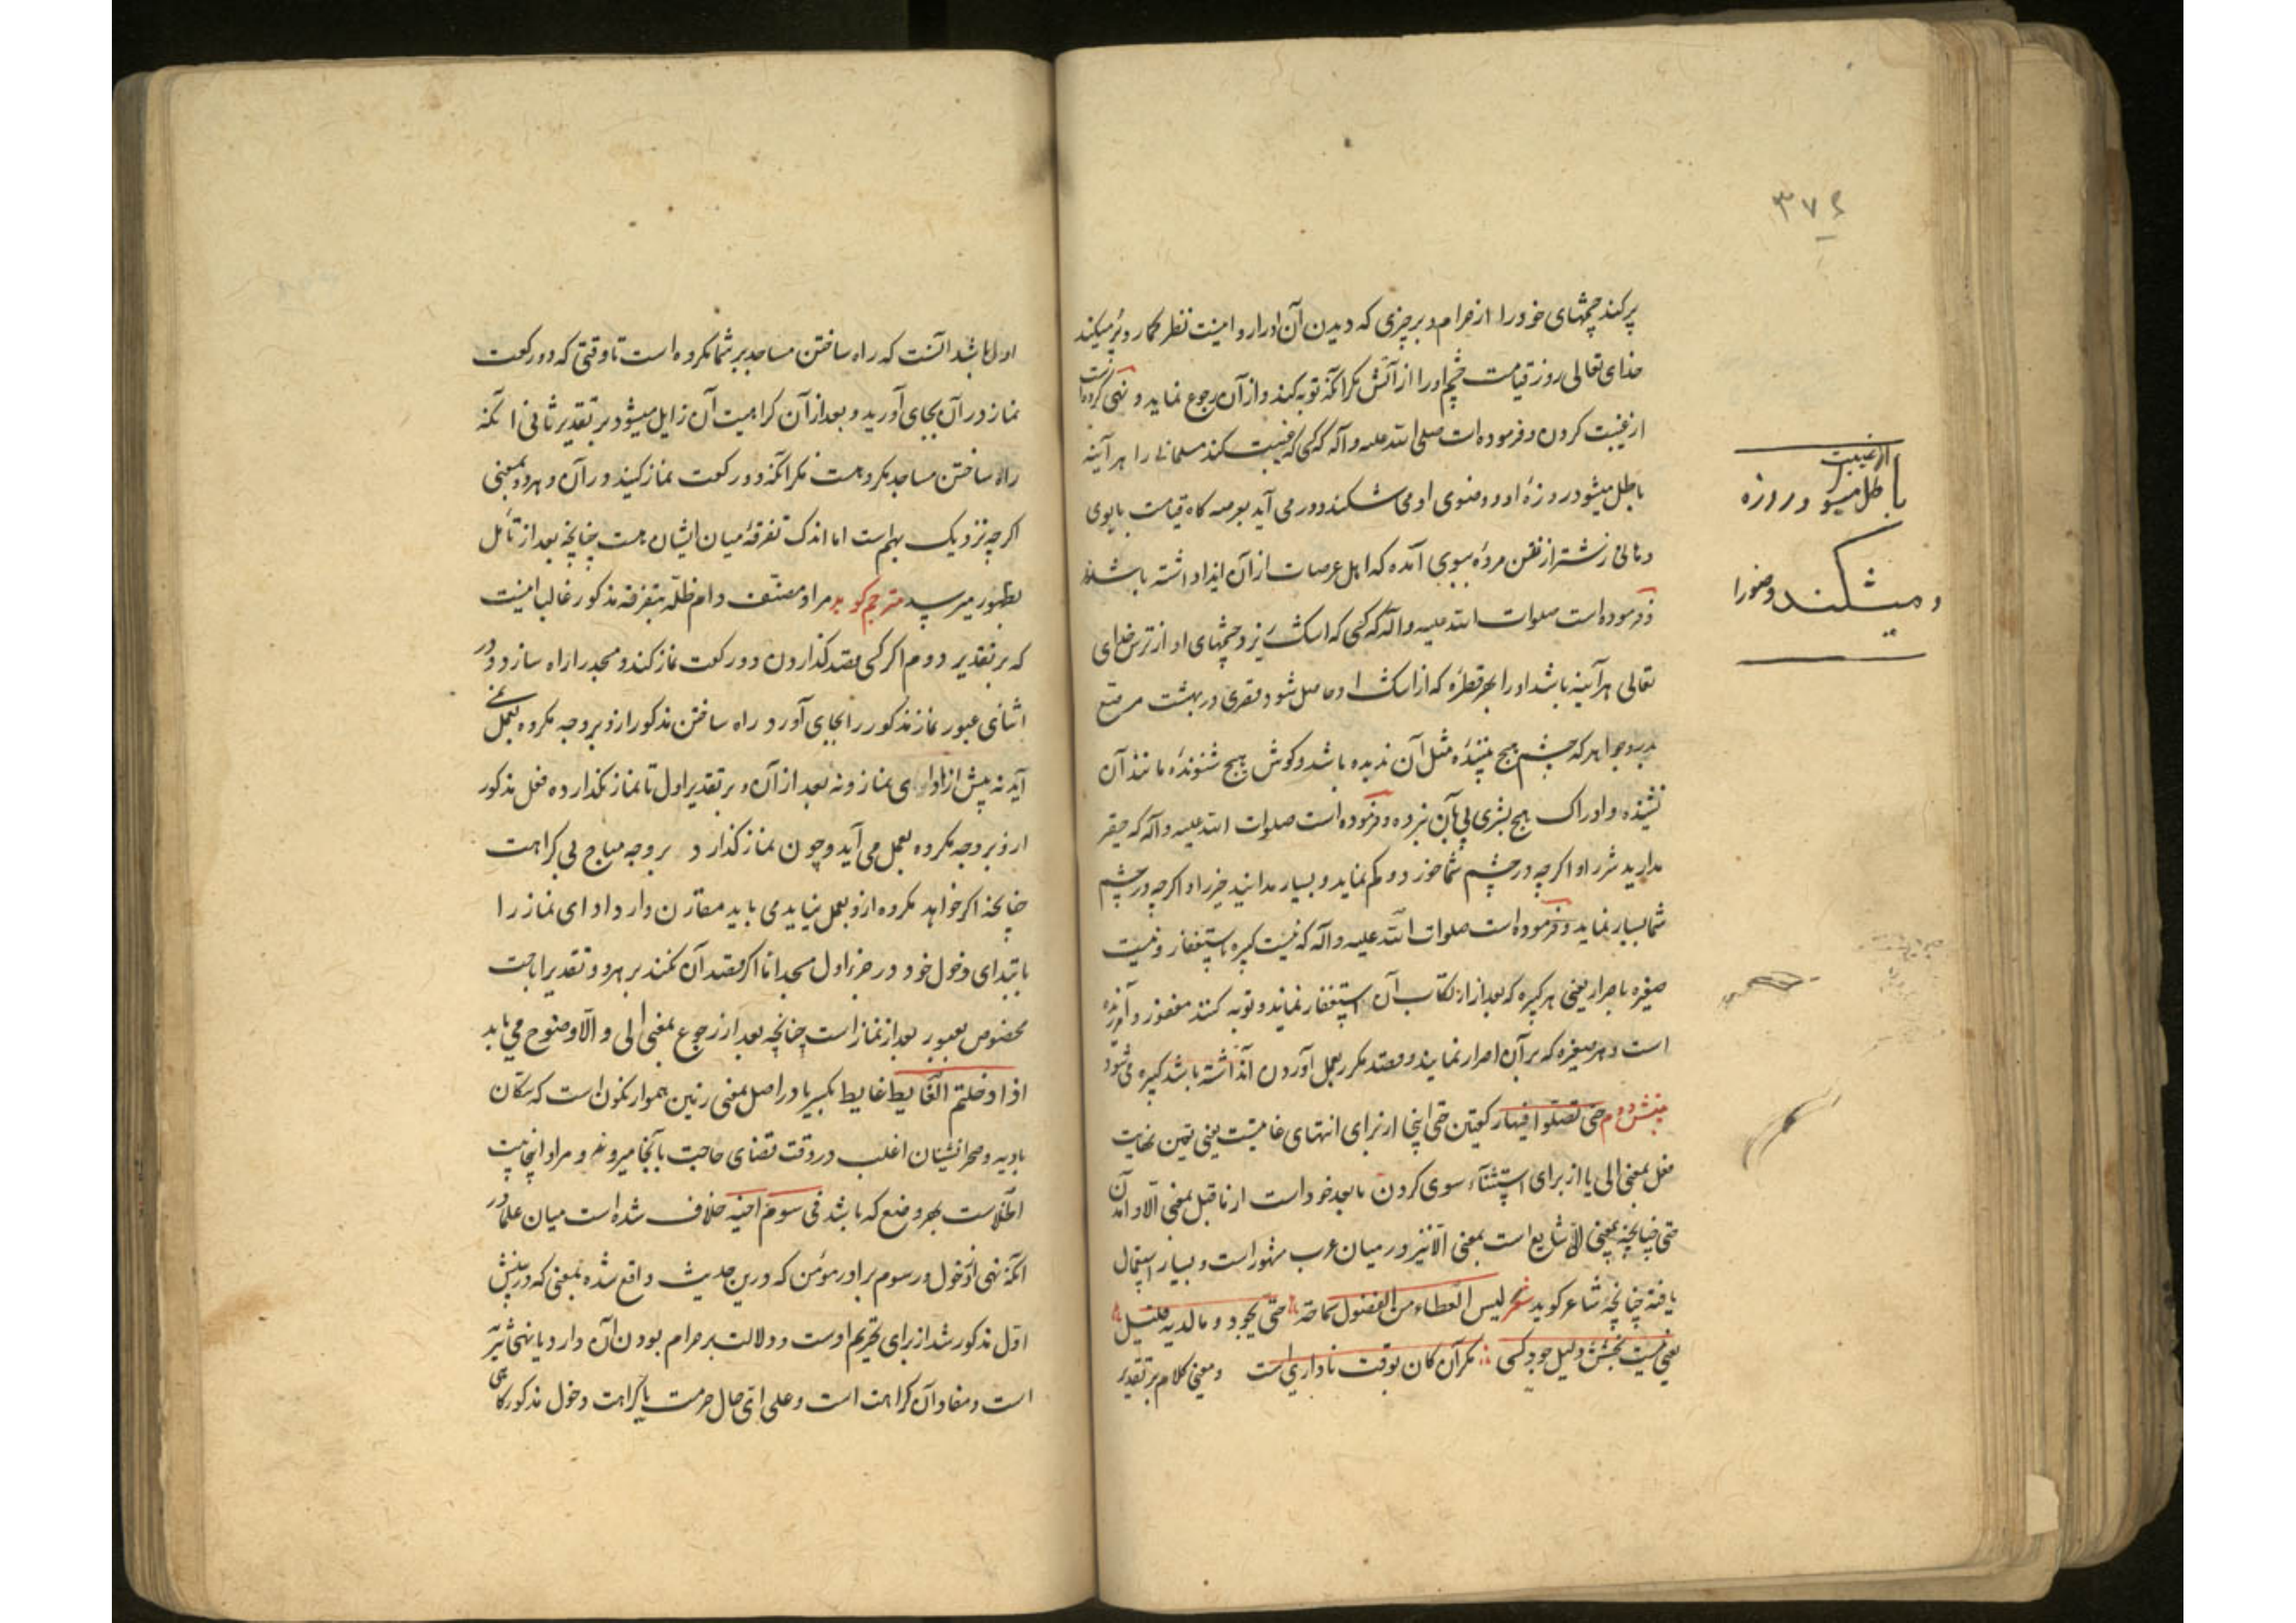 ۳۷۶
پر کند چشمهای خود را از حرام و بر چیزی که دیدن آن او را روا نیست نظر کمارد پر میکند
خدای تعالی روز قیامت چشم او را از آتش مکر آنکه توبه کند و از آن رجوع نماید و نهی کرده است
از غیبت کردن و فرموده است صلی الله علیه و آله که کسی که غیبت کند مسلمانی را هر آینه
باطل میشود روزه او و وضوی او می شکند و در می آید بعرصه کاه قیامت با بوی
دهانی زشتتر از نفن مرده ببوی آمده که اهل عرصات از آن ایذا داشته باشند
و فرموده است صلوات الله علیه و آله که کسی که اشک ریزد چشمهای او از ترس خدای
تعالی هر آینه باشد او را بهر قطره که از اشک او حاصل شود قصری در بهشت مرصع
بدر و جواهر که چشم هیچ بیننده مثل آن ندیده باشد و کوش هیچ شنونده مانند آن
نشنیده و ادراک هیچ بشری پی بآن نبرده و فرموده است صلوات الله علیه و آله که حقیر
مدارید شر را و اکرچه در چشم شما خورد و کم نماید و بسیار مدانید خیر را و اکرچه در چشم
شما بسیار نماید و فرموده است صلوات الله علیه و آله که نیست کبیره باستغفار و نیست
صغیره باصرار یعنی هر کبیره که بعد از ارتکاب آن استغفار نماید و توبه کنند مغفور و آمرزیده
است و هر صغیره که بر آن اصرار نمایند و قصد مکرر بعمل آوردن آن داشته باشد کبیره می شود
بینش دوم حتی تصلوا فیها رکعتین حتی اینجا از برای انتهای غایتست یعنی تعیین نهایت
فعل بمعنی الی یا از برای استثناء سوی کردن مابعد خود است از ماقبل بمعنی الا و آمدن
حتی چنانچه بمعنی الی شایع است بمعنی الا نیز در میان عرب مشهور است و بسیار استعمال
یافته چنانچه شاعر کوید شعر لیس العطاء من الفضول سماحة حتی تجود و ما لدیه قلیل
یعنی نیست بخشش دلیل جود کسی مکر آن کان بوقت ناداری است و معنی کلام بر تقدیر
از غیبت
باطل میشود روزه
و میشکند وضو را
اول باشد آنست که راه ساختن مساجد بر شما مکروه است تا وقتی که دو رکعت
نماز در آن بجای آورید و بعد از آن کراهیت آن زایل میشود بر تقدیر ثانی آنکه
راه ساختن مساجد مکروهست مکر آنکه دو رکعت نماز کنید در آن و هر دو معنی
اکرچه نزدیک بهم است اما اندک تفرقه میان ایشان هست چنانچه بعد از تأمل
بظهور میرسد مترجم کوید مراد مصنف دام ظله بتفرقه مذکور غالبا اینست
که بر تقدیر دوم اکر کسی بقصد کذاردن دو رکعت نماز کند و مسجد را راه سازد و در
اثنای عبور نماز مذکور را بجای آورد راه ساختن مذکور ازو بر وجه مکروه بعمل نمی
آید نه پیش از ادای نماز و نه بعد از آن و بر تقدیر اول تا نماز نکذارده فعل مذکور
ازو بر وجه مکروه بعمل می آید و چون نماز کذارد بر وجه مباح بی کراهت
چنانچه اکر خواهد مکروه ازو بعمل نیاید می باید مقارن دارد ادای نماز را
بابتدای دخول خود در جزء اول مسجد اما اکر قصد آن نکند بر هر دو تقدیر اباحت
مخصوص بعبور بعد از نماز است چنانچه بعد از رجوع بمعنی الی و الا وضوح می یابد
اذا دخلتم الغایط غایط بکسر یا در اصل بمعنی زمین هموار نکون است که سکان
بادیه و صحرا نشینان اغلب در وقت قضای حاجت بآنجا میروند و مراد اینجا بیت
الخلاست بهر وضع که باشد فی سوم اخیه خلاف شده است میان علما در
آنکه نهی از دخول در سوم برادر مؤمن که درین حدیث واقع شده بمعنی که در بینش
اول مذکور شد از برای تحریم اوست و دلالت بر حرام بودن آن دارد یا نهی تنزیه
است و مفاد آن کراهت است و علی ای حال حرمت یا کراهت دخول مذکور کاهی